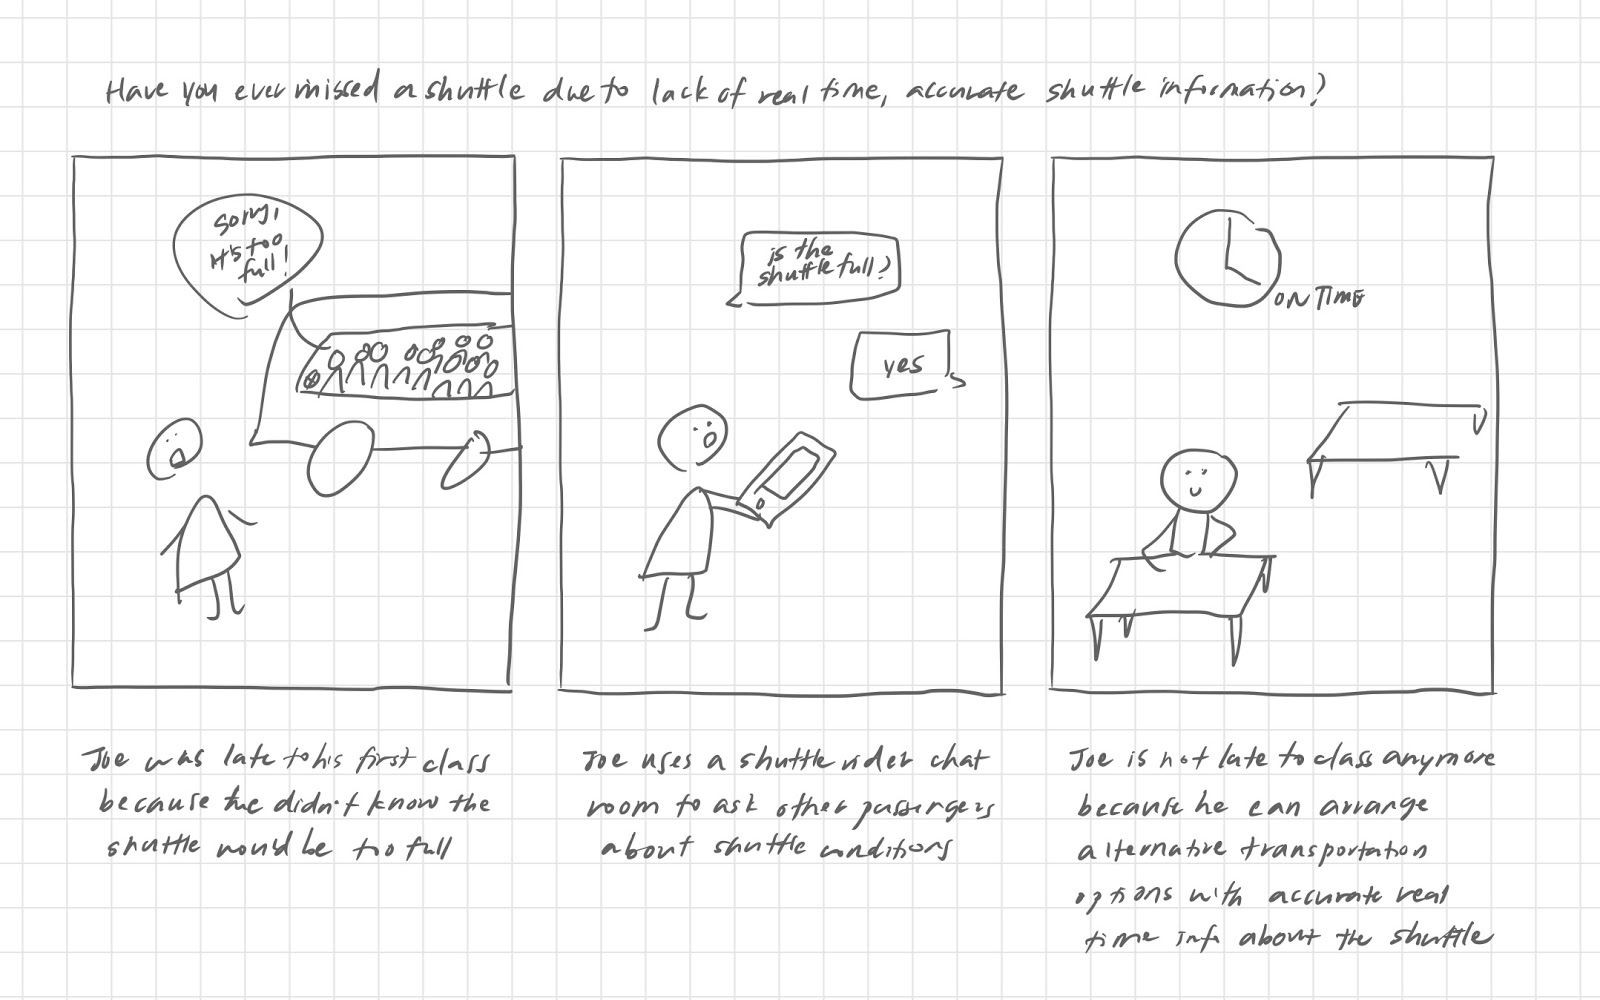 Have you ever missed a shuttle due to lack of real time, accurate shuttle information?
Sorry,
it's too
full!
is the
shuttle full?
yes
ON TIME
Joe was late to his first class
because he didn't know the
shuttle would be too full
Joe uses a shuttle rider chat
room to ask other passengers
about shuttle conditions
Joe is not late to class anymore
because he can arrange
alternative transportation
options with accurate real
time info about the shuttle